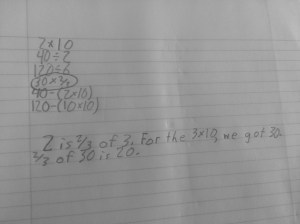 2×10
40÷2
120÷6
30×2/3
40-(2×10)
120-(10×10)
2 is 2/3 of 3. For the 3×10, we got 30.
2/3 of 30 is 20.